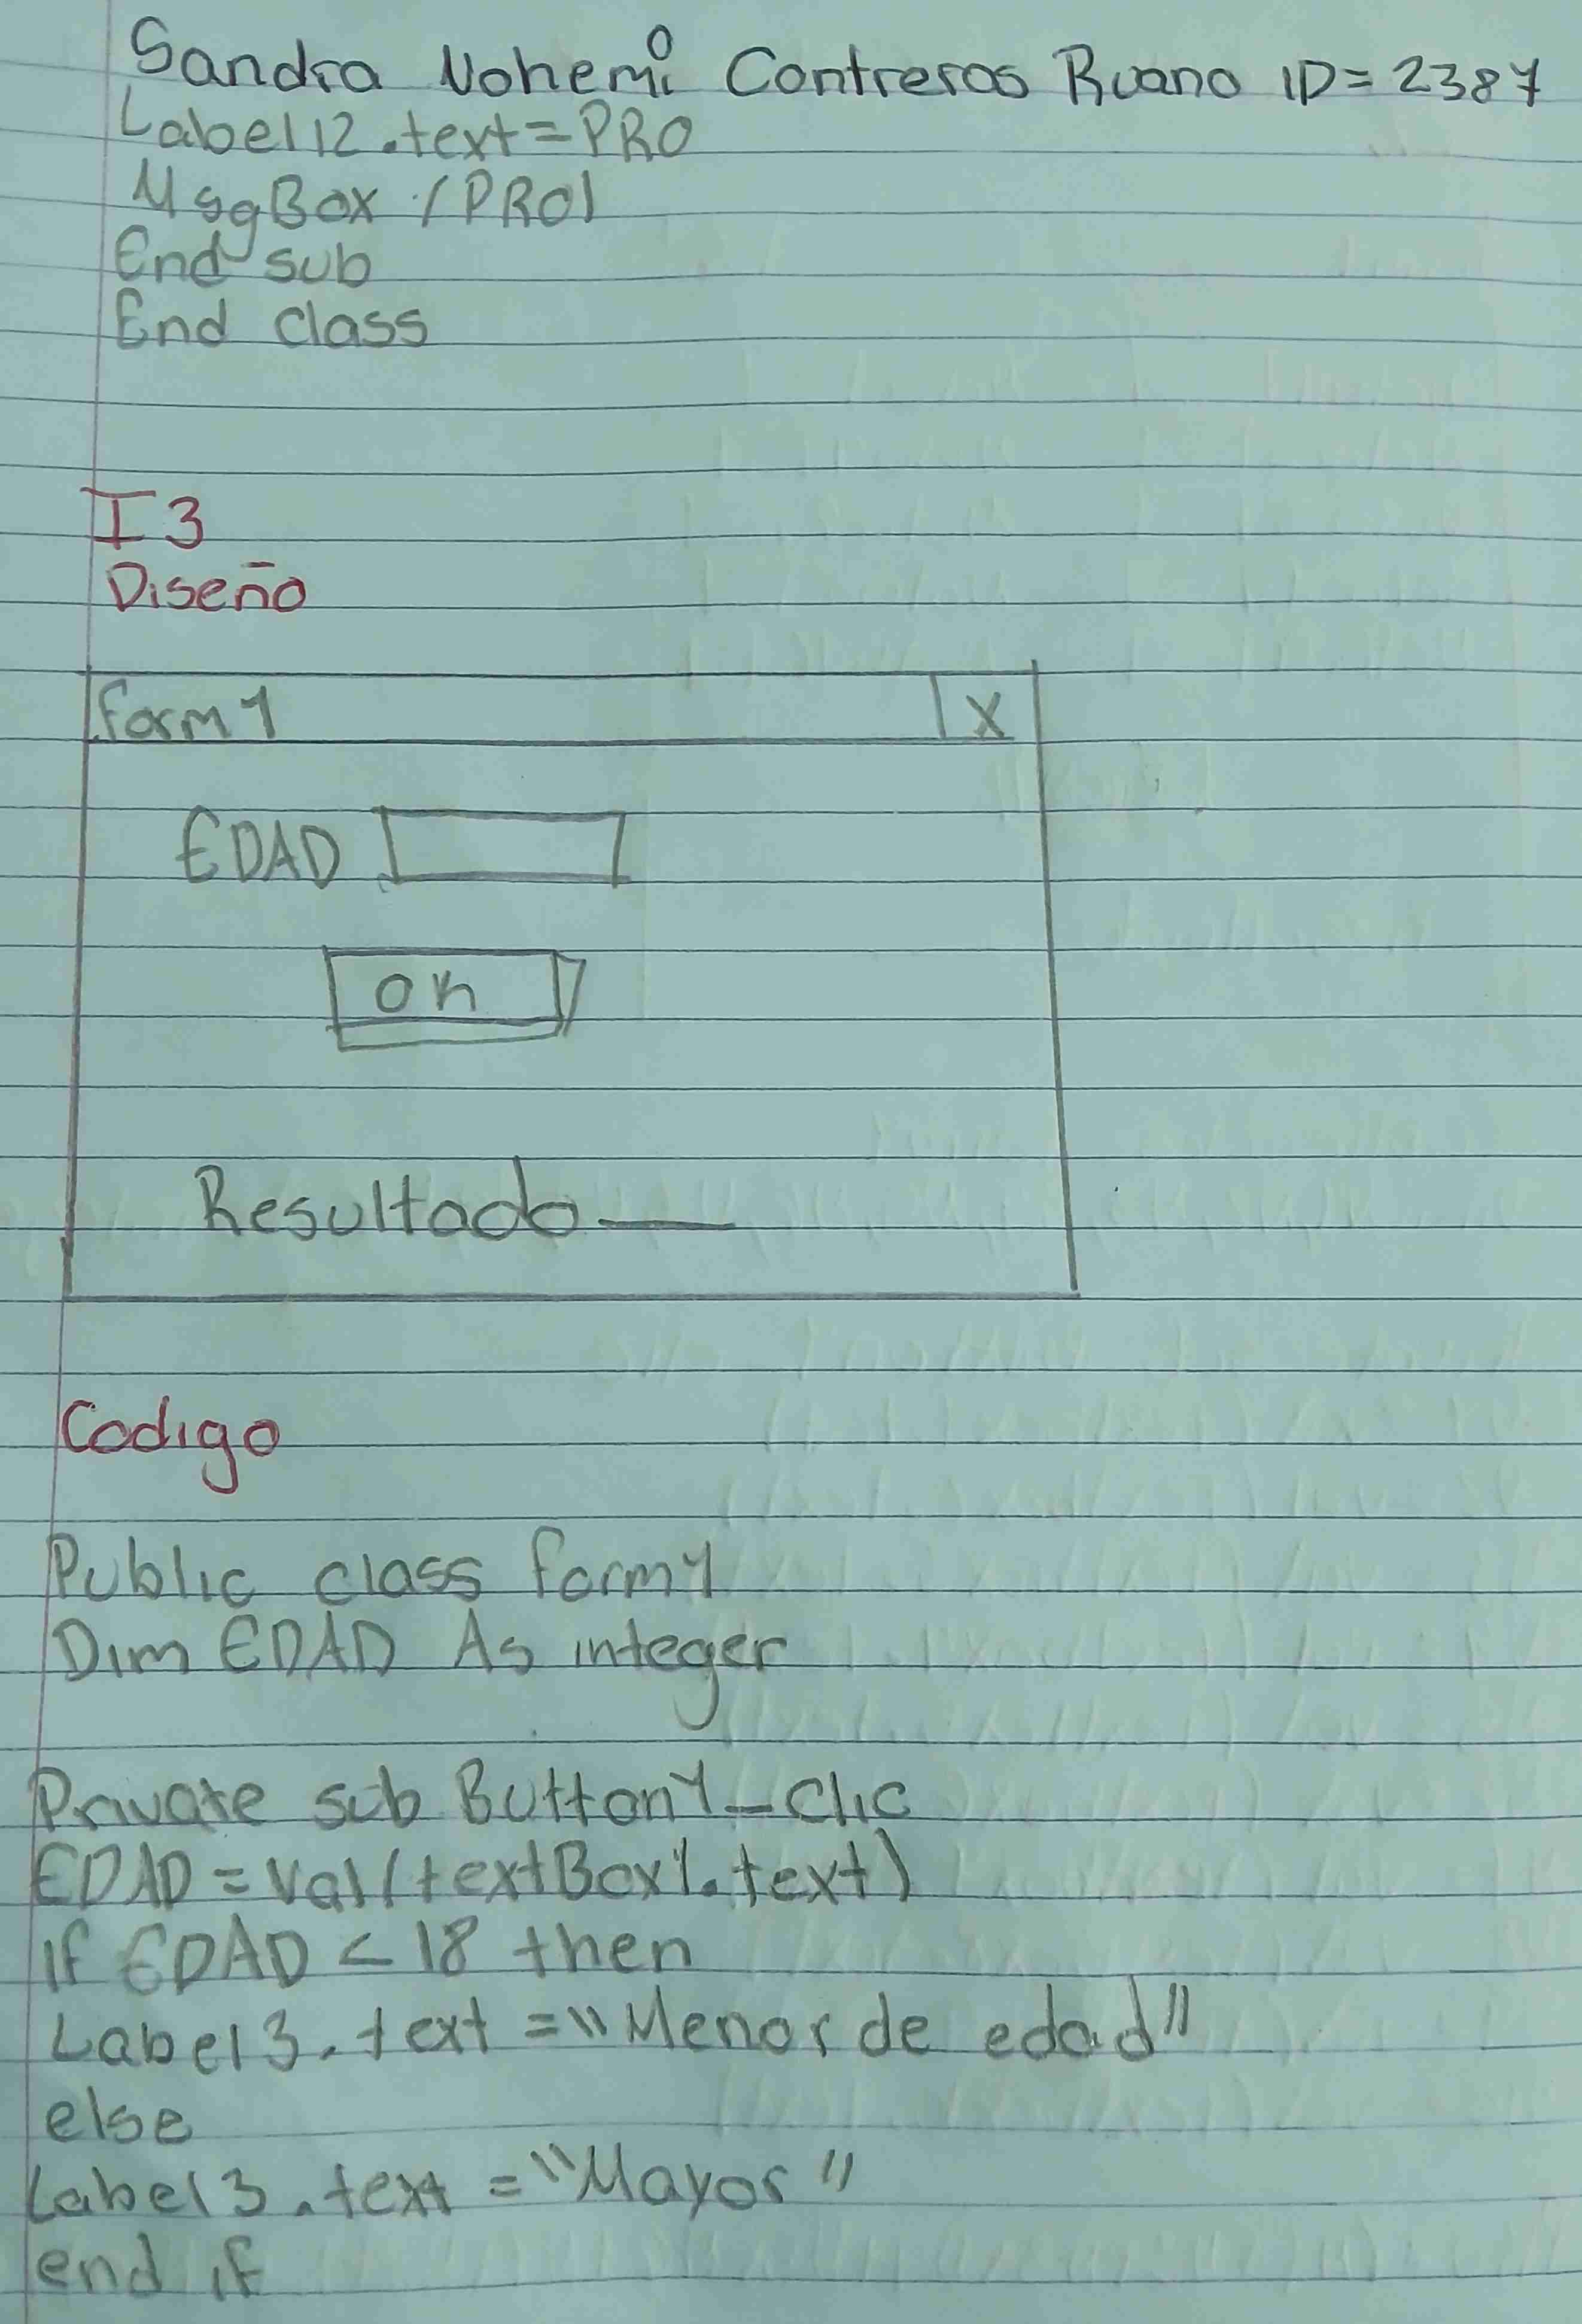 Sandra Nohemi Contreras Ruano ID=2387
Label12.text=PRO
MsgBox (PRO)
End sub
End class
I3
Diseño
form1 X
EDAD
OK
Resultado
Codigo
Public class form1
Dim EDAD As integer
Private sub Button1_Clic
EDAD=Val(textBox1.text)
if EDAD < 18 then
Label3.text ="Menor de edad"
else
Label3.text ="Mayor"
end if